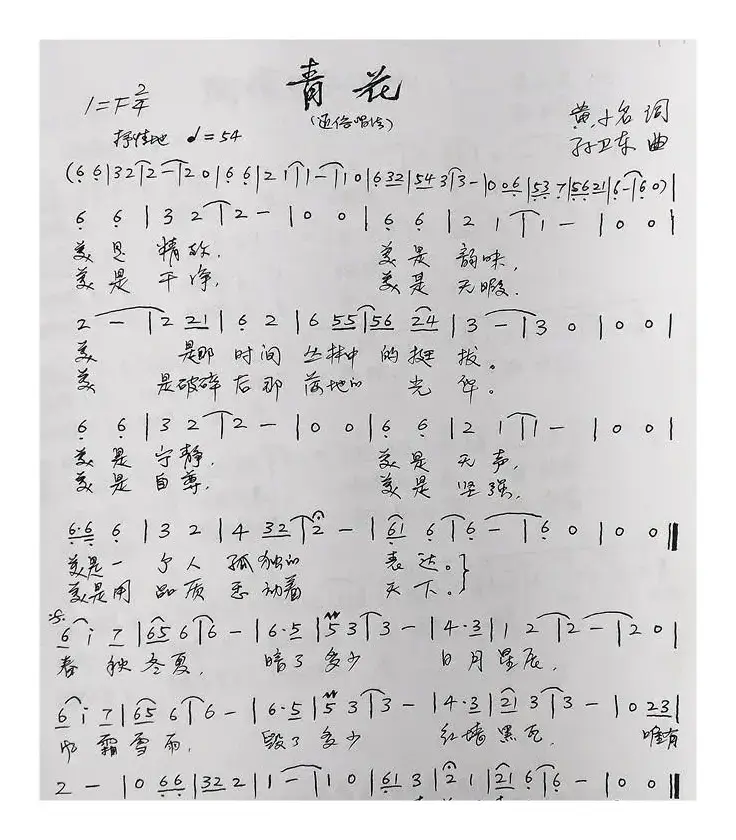 青花
(通俗唱法)
1=F 2/4
抒情地 ♩=54
黄小名 词
孙卫东 曲
(6 6|3 2 2|2 2 0|6 6|2 1 1|1 1 0|6 32|54 3 3|3 -|0 06|53 7|5621|6 -|6 0)|
6 6 | 3 2 | 2 - | 0 0 | 6 6 | 2 1 | 1 - | 0 0 |
美 是 精致, 美 是 韵味,
美 是 干净, 美 是 无暇.
2 - | 2 21 | 6 2 | 6 55 | 56 24 | 3 - | 3 0 | 0 0 |
美 是那 时间 丛林中 的 挺 拔。
美 是破碎 后 那 落地的 光 辉。
6 6 | 3 2 | 2 - | 0 0 | 6 6 | 2 1 | 1 - | 0 0 |
美 是 宁静, 美 是 无声,
美 是 自尊, 美 是 坚强,
6·6 6 | 3 2 | 4 32 | 2 - | 61 6 | 6 - | 6 0 | 0 0 ‖
美是一 个人 孤独的 表达。}
美是用 品质 感动着 天下。}
6 i 7 | 65 6 | 6 - | 6·5 | 5 3 | 3 - | 4·3 | 1 2 | 2 - | 2 0 |
春 秋 冬夏, 暗了 多少 日月星辰,
6 i 7 | 65 6 | 6 - | 6·5 | 5 3 | 3 - | 4·3 | 21 3 | 3 - | 0 23 |
霜雪雨, 毁了 多少 红墙黑瓦, 唯有
2 - | 0 66 | 32 2 | 1 - | 1 0 | 61 3 | 2 1 | 21 6 | 6 - | 0 0 ‖